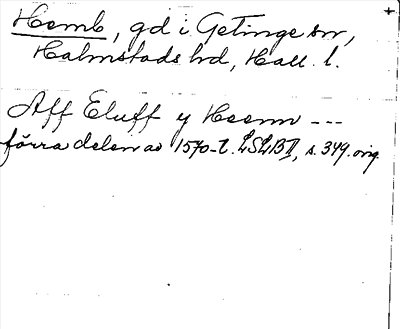 Hemb, gd i Getinge sn,
Halmstads hd, Hall. l.
Aff Eluff y Heem ---
förra delen av 1570-t. LSLB II, s. 349. orig.